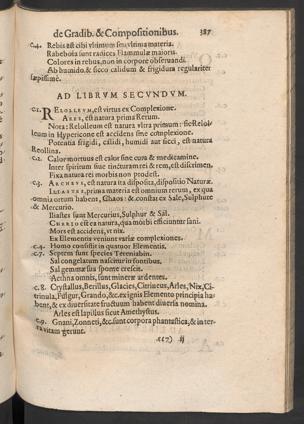 de Gradib. & Compositionibus. 387
c.4. Rebis est cibi vltimum seu vltima materia.
Rabeboia sunt radices Flammulæ maioris.
Colores in rebus, non in corpore obseruandi.
Ab humido & sicco calidum & frigidum regulariter
sæpissimè.
AD LIBRVM SECVNDVM.
c.1. RELOLLEVM, est virtus ex Complexione.
ARES, est natura prima Rerum.
Nota: Relolleum est natura vltra primum: sic Relol-
leum in Hypericone est accidens sine complexione.
Potentia frigidi, calidi, humidi aut sicci, est natura
Reollina.
c.2. Calor mortuus est calor sine cura & medicamine.
Inter spiritum siue tincturam rei & rem, est discrimen.
Fixa natura rei morbis non prodest.
c.3. ARCHEVS, est natura ita disposita, dispositio Naturæ.
ILIASTES, prima materia est omnium rerum, ex qua
omnia ortum habent, Chaos: & constat ex Sale, Sulphure
& Mercurio.
Iliastes sunt Mercurius, Sulphur & Sal.
CHERIO est ea natura, qua morbi efficiuntur sani.
Mors est accidens, vt nix.
Ex Elementis veniunt variæ complexiones.
c.4. Homo consistit in quatuor Elementis.
c.7. Septem sunt species Tereniabin.
Sal congelatum nascitur in fontibus.
Sal gemmæ sua sponte crescit.
Aethna omnis, sunt mineræ ardentes.
c.8. Crystallus, Berillus, Glacies, Citrinæus, Arles, Nix, Ci-
trinula, Fulgur, Grando, &c. ex ignis Elemento principia ha-
bent, & ex diuersitate fructuum habent diuersa nomina.
Arles est lapillus sicut Amethystus.
c.9. Gnani, Zonneti, &c. sunt corpora phantastica, & in ter-
ra vitam gerunt.
ij